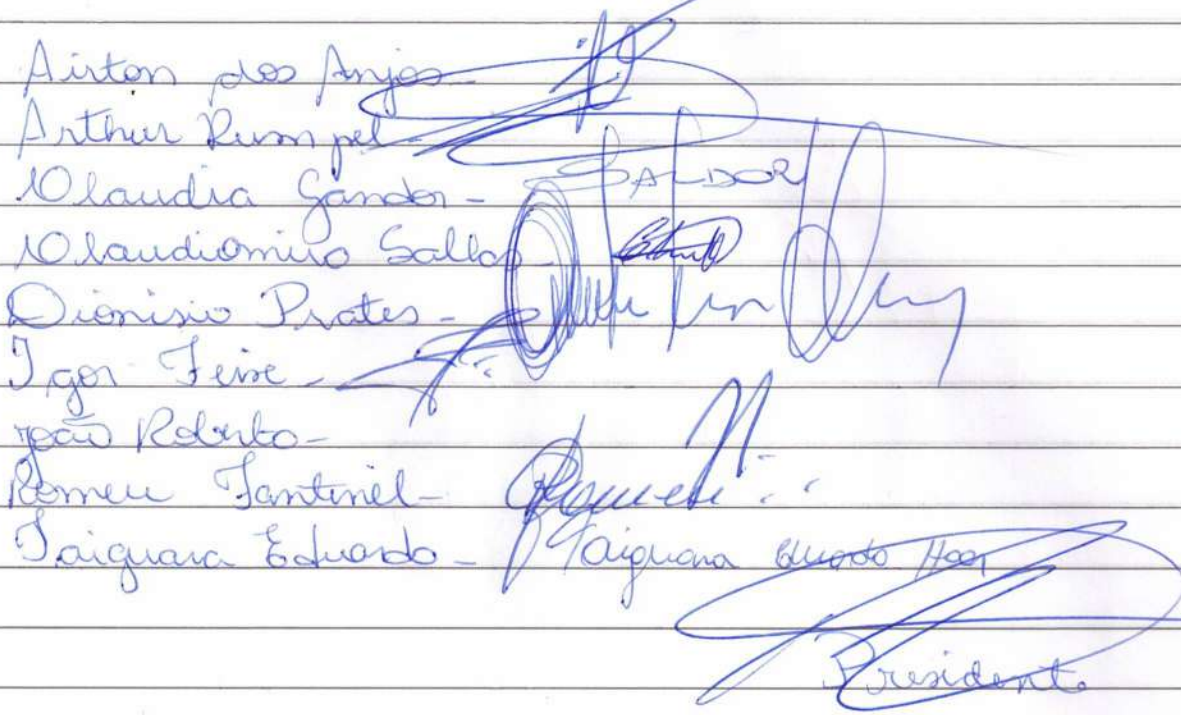 Airton dos Anjos -
Arthur Rumpel -
Claudia Gandor -
Claudiomiro Sallas -
Dionisio Prates -
Igor Feixe -
João Roberto -
Romeu Fantinel -
Taiguara Eduardo - Taiguara Eduardo
Presidente